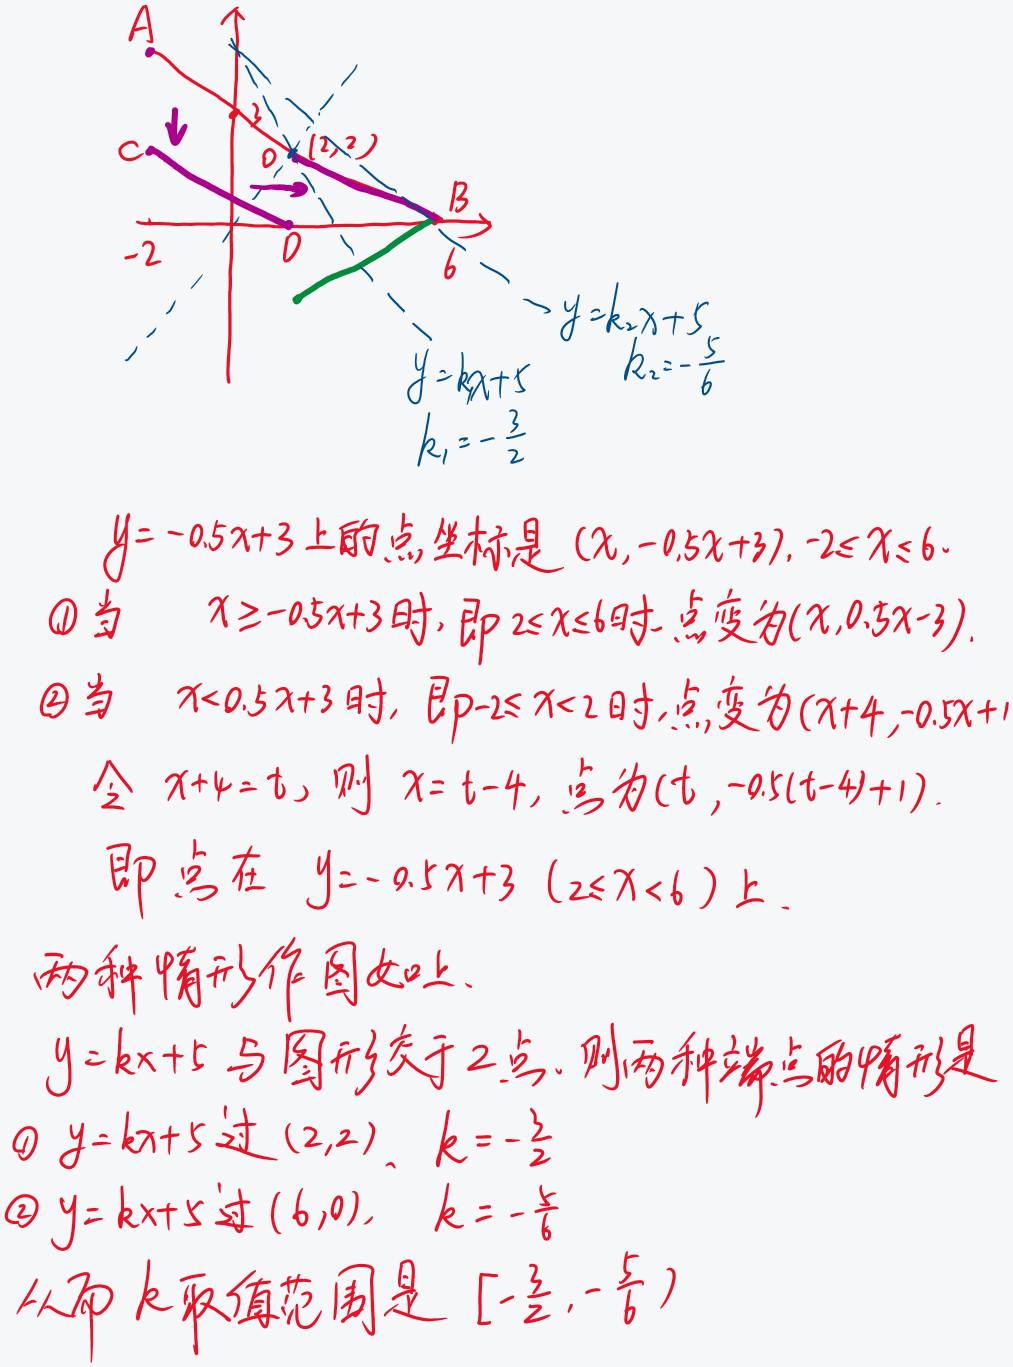 A
3
C
D
(2,2)
B
-2
D
6
y=k₂x+5
k₂=-5/6
y=k₁x+5
k₁=-3/2
y=-0.5x+3上的点坐标是 (x,-0.5x+3), -2≤x≤6.
①当 x≥-0.5x+3时, 即2≤x≤6时.点变为(x,0.5x-3).
②当 x<0.5x+3时, 即-2≤x<2时,点变为(x+4,-0.5x+1
令 x+4=t, 则 x=t-4, 点为(t,-0.5(t-4)+1).
即点在 y=-0.5x+3 (2≤x<6)上.
两种情形作图如上.
y=kx+5与图形交于2点.则两种端点的情形是
① y=kx+5过(2,2)、 k=-3/2
② y=kx+5过(6,0), k=-5/6
从而k取值范围是 [-3/2,-5/6)